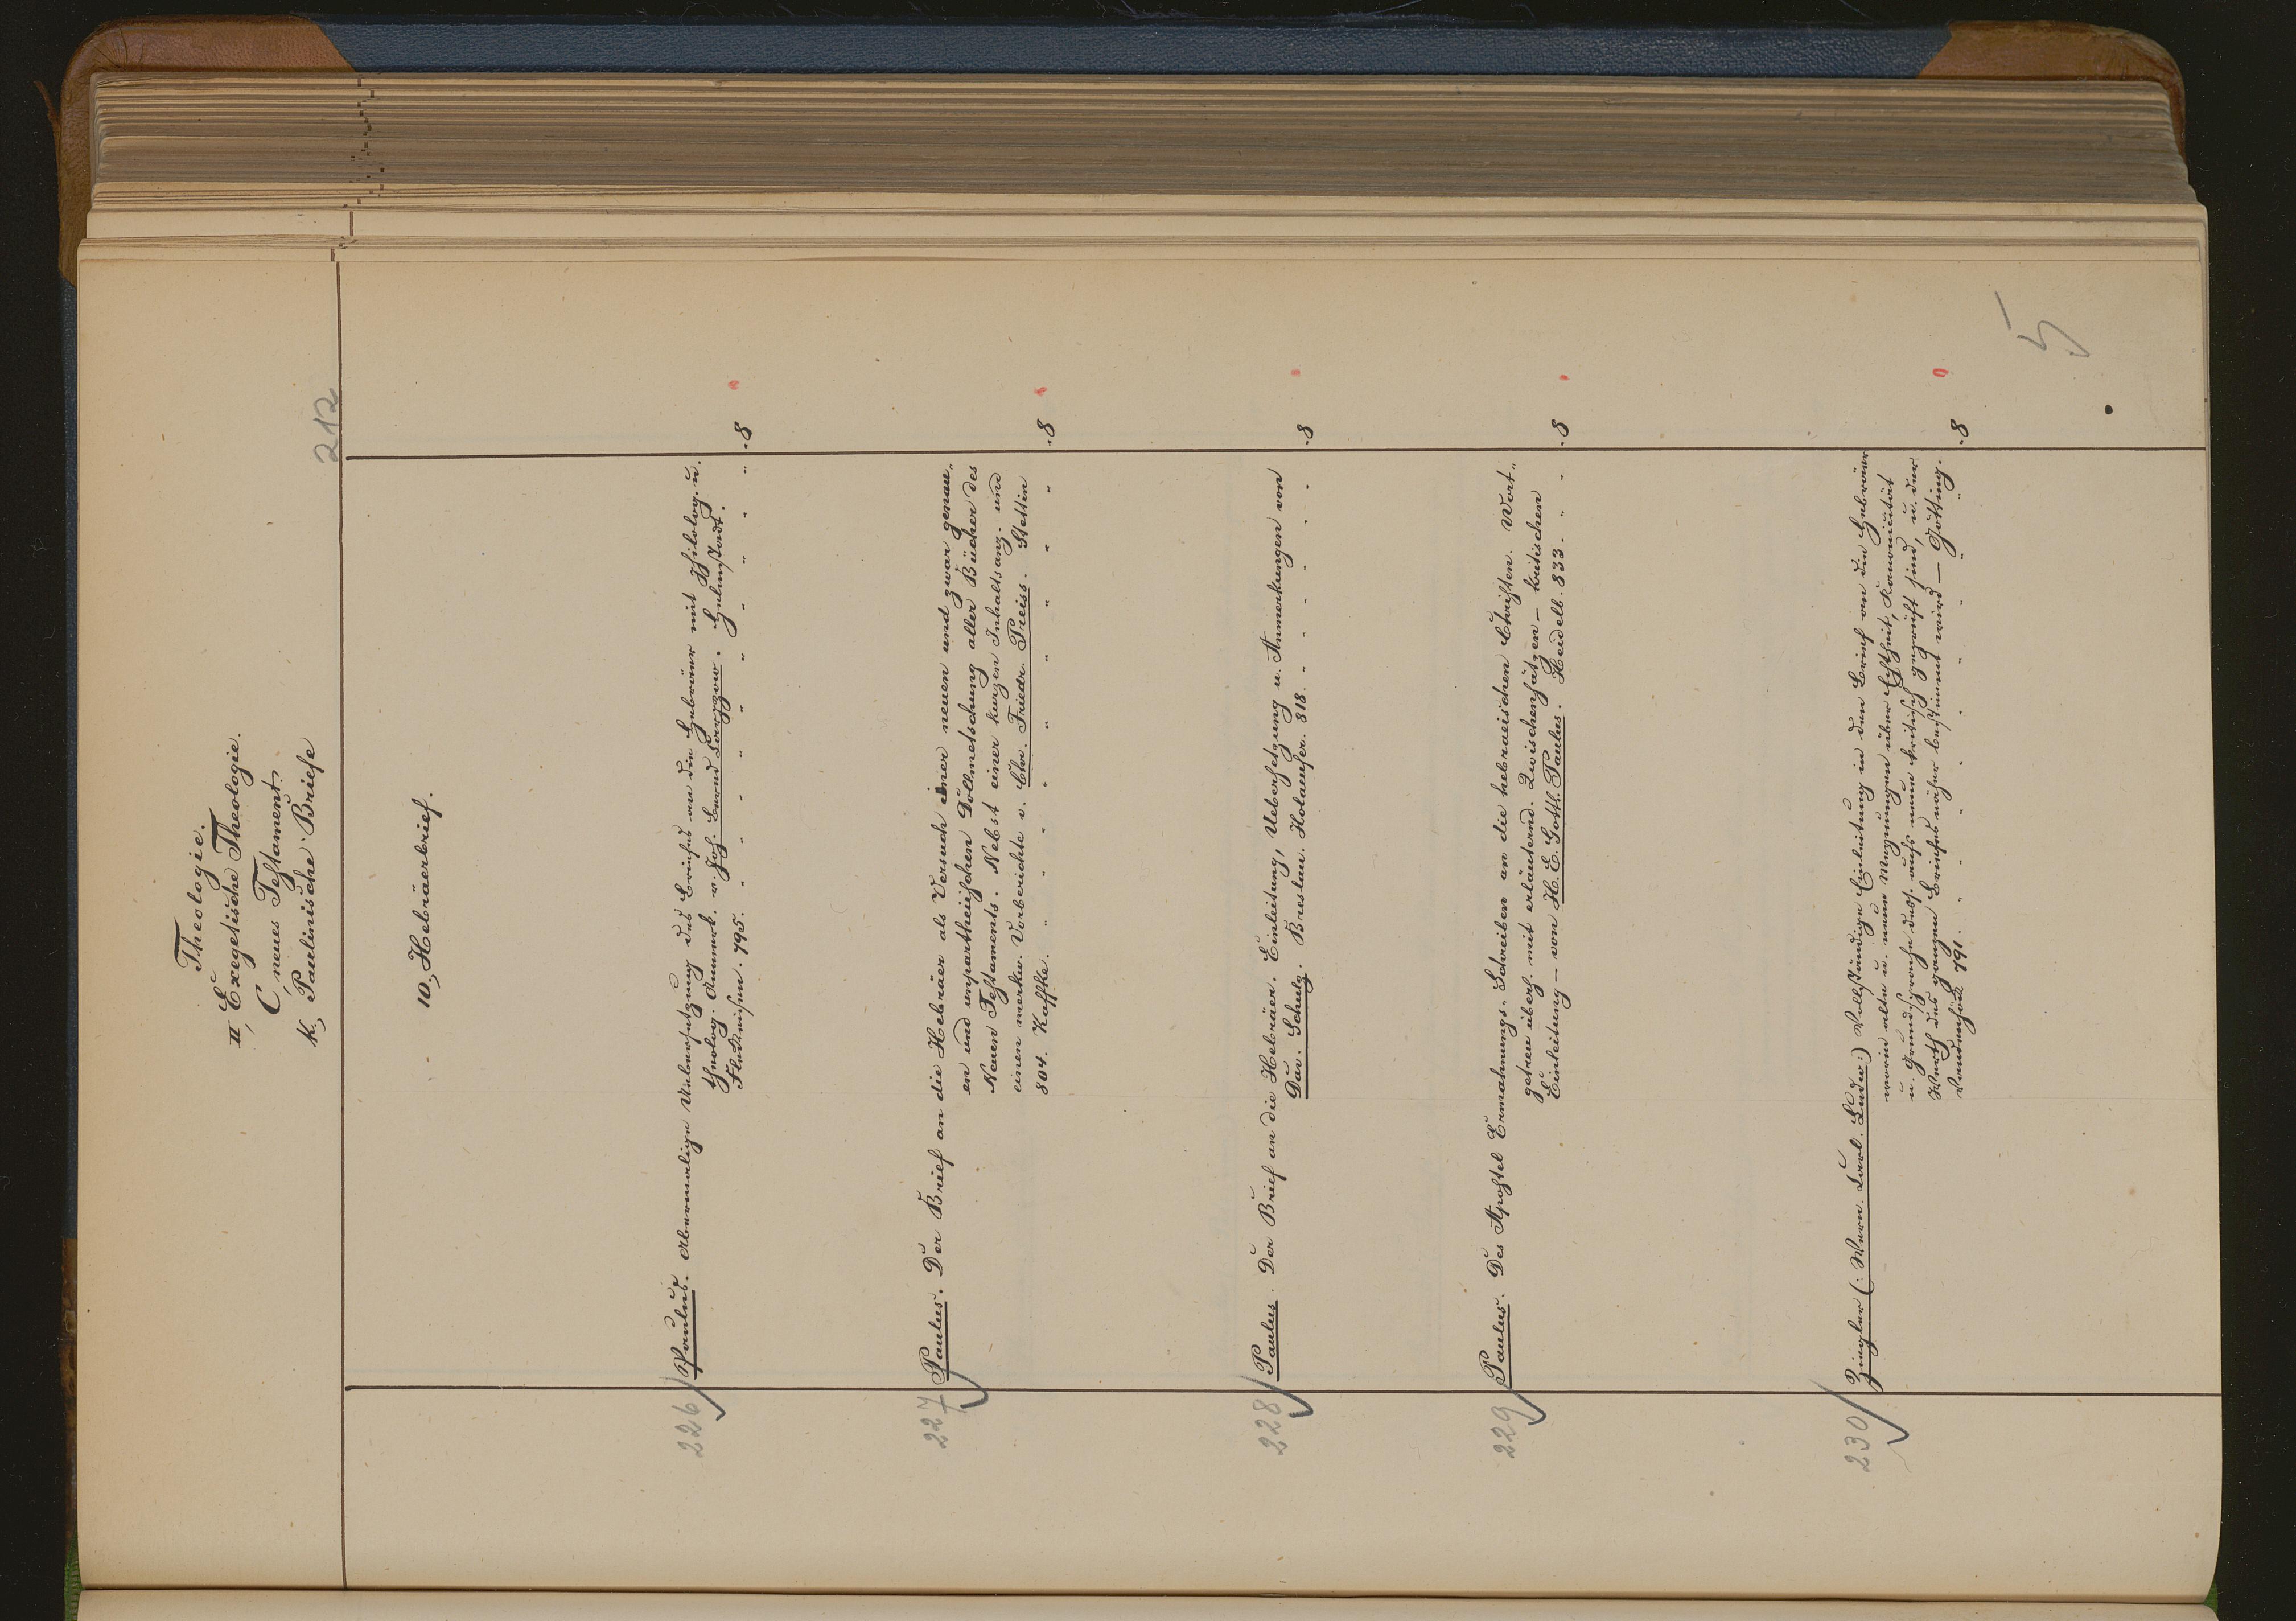 Theologie.
II, Exegetische Theologie.
C, neues Testament.
k, Paulinische Briefe
212
10, Hebräerbrief.
226 Paulus. Abermalige Uebersetzung des Briefes an die Hebräer mit philolog. u.
theolog. Anmerk. v. Joh. Bernd Carpzov. Helmstadt.
Fleckeisen. 795. 8
227 Paulus. Der Brief an die Hebräer als Versuch einer neuen und zwar genau„
en und unpartheiischen Dollmetschung aller Bücher des
Neuen Testaments. Nebst einer kurzen Inhaltsanz. und
einen merkw. Vorberichte v. Chr. Friedr. Preiss. Stettin
804. Kaffke. 8
228 Paulus. Der Brief an die Hebräer. Einleitung, Uebersetzung u. Anmerkungen von
Dav. Schulz. Breslau. Holaeufer. 818. 8
229 Paulus. Des Apostel Ermahnungs-Schreiben an die hebraeischen Christen. Wort„
getreu übers. mit erläuternd. Zwischensätzen - kritischen
Einleitung - von H. E. Gottl. Paulus. Heidelb. 833. 8
230 Ziegler (: Wern. Carl. Ludw:) Vollständige Einleitung in den Brief an die Hebräer
worin alte u. neue Meynungen über Echtheit, Kanonicität
u. Grundsprache dess. aufs neue kritisch geprüft sind, u. der
Werth des ganzen Briefes näher bestimmt wird - Götting.
Vandenhök 791. 8
5